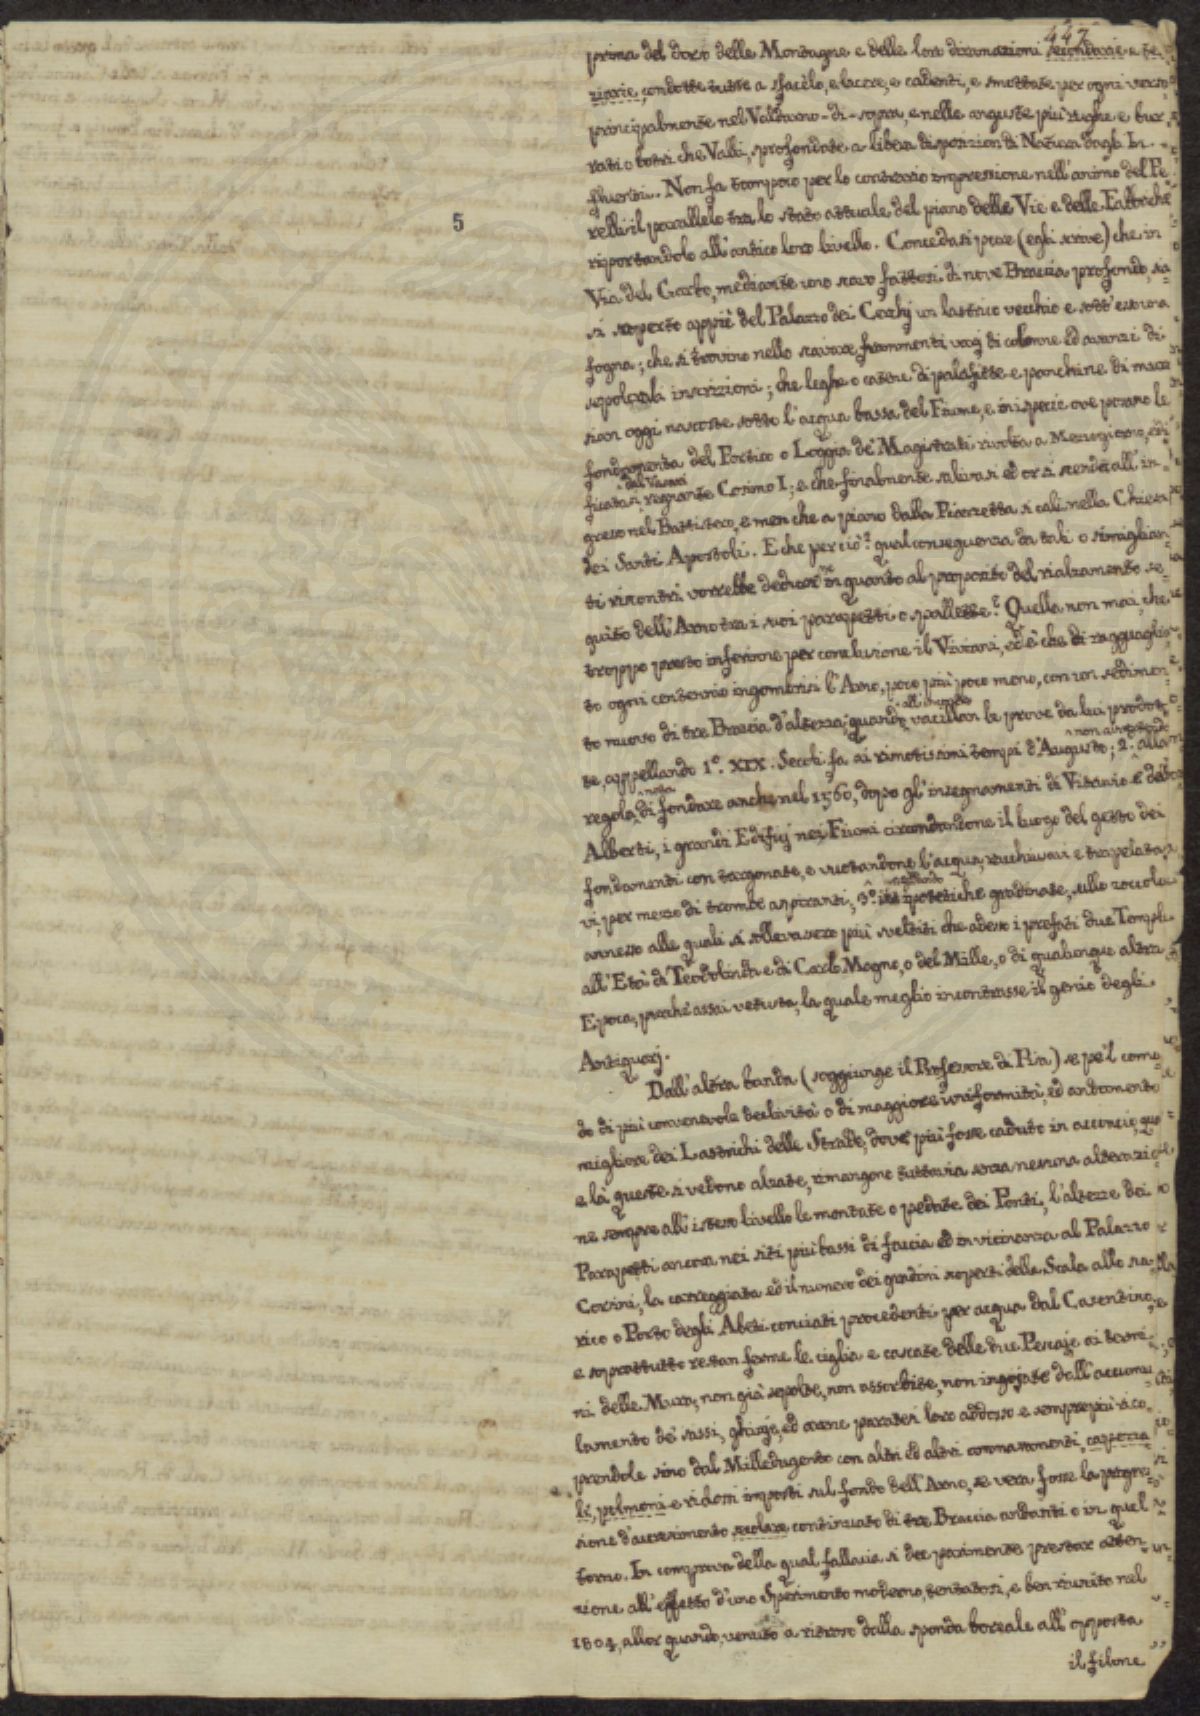 447
prima del dorso delle Montagne e delle loro diramazioni secondarie e te
ziarie, condotte tutte a sfacèlo, e lacere, e cadenti, e smottate per ogni verso
principalmente nel Valdarno-di-sopra, e nelle anguste più rughe e bur
rati o botri che Valli, profondate a libera disposizion di Natura dagli In-
fluenti. Non fa tampoco per lo contrario impressione nell'animo del Fe
relli il parallelo tra lo stato attuale del piano delle Vie e delle Fabbriche
5
riportandolo all'antico loro livello. Concedasi pure (egli scrive) che in
Via del Garbo, mediante uno scavo fattosi di nove Braccia profondo, sia
si scoperto appiè del Palazzo dei Cerchj un lastrico vecchio e sott'esso una
fogna; che si trovino nello scavare frammenti varj di colonne ed avanzi di
sepolcrali inscrizioni; che leghe o catene di palafitte e panchine di muro
sian oggi nascoste sotto l'acqua bassa del Fiume, e in ispecie ove posano le
fondamenta del Portico o Loggia de' Magistrati rivolta a Mezzogiorno, edi
dal Vasari
ficatasi, regnante Cosimo I; e che finalmente salivasi ed or si scende all'in-
gresso nel Battistero, e men che a piano dalla Piazzetta si cali nella Chiesa
dei Santi Apostoli. E che perciò? qual conseguenza da tali o simiglian
ti riscontri vorrebbe dedursene in quanto al proposito del rialzamento se-
guito dell'Arno tra i suoi parapetti o spallette? Quella non mai, che
troppo presto inferinne per conclusione il Viviani, ed è che di ragguaglia
to ogni centennio ingombrisi l'Arno, poco più poco meno, con un sedimen
to nuovo di tre Braccia d'altezza; quando vacillan le prove da lui prodot
te, appellando 1.º XIX. Secoli fa ai rimotissimi tempi d'Augusto; 2.º alla
nota
regola di fondare anche nel 1560, dopo gl'insegnamenti di Vitruvio e dell'
Alberti, i grandi Edifizj nei Fiumi circondandone il luogo del getto dei
fondamenti con targonate, e vuotandone l'acqua, racchiusavi e trapelata
vi, per mezzo di trombe aspiranti; 3.º ipotetiche gradinate, sullo zoccolo
annesso alle quali si sollevassero più svelti che adesso i prefati due Templi
all'Età di Teodolinda e di Carlo Magno, o del Mille, o di qualunque altra
Epoca, purchè assai vetusta, la quale meglio incontrasse il genio degli
Antiquarj.
Dall'altra banda (soggiunge il Professore di Pisa) se pe'l como
do di più convenevole declività o di maggiore uniformità, ed andamento
migliore dei Lastrichi delle Strade, dove più fosse caduto in acconcio, qua
e là queste si vedono alzate, rimangono tuttavia senza nessuna alterazio
ne sempre all'istesso livello le montate o pedate dei Ponti, l'altezze dei
Parapetti ancora nei siti più bassi di faccia ed in vicinanza al Palazzo
Corsini, la carreggiata ed il numero dei gradini scoperti della Scala allo sca-
rico o Porto degli Abeti conciati procedenti per acqua dal Casentino,
e soprattutto restan ferme le ciglia e cascate delle due Pescaje ai termi
ni delle Mura, non già sepolte, non assorbite, non ingojate dall'accumu
lamento dei sassi, ghiaje, ed arene paratesi loro addosso e sempre più rico
prendole sino dal Milledugento con altri ed altri commassamenti,
li, polmoni e ridossi imposti sul fondo dell'Arno, se vera fosse la progres
sione d'accrescimento secolare continuato di tre Braccia andanti o in quel
torno. In comprova della qual fallacia si dee parimente prestar atten-
zione all'effetto d'uno Sperimento moderno, tentatosi, e ben riuscito nel
1804, allor quando, venuto a ritroso dalla sponda boreale all'opposta
il filone